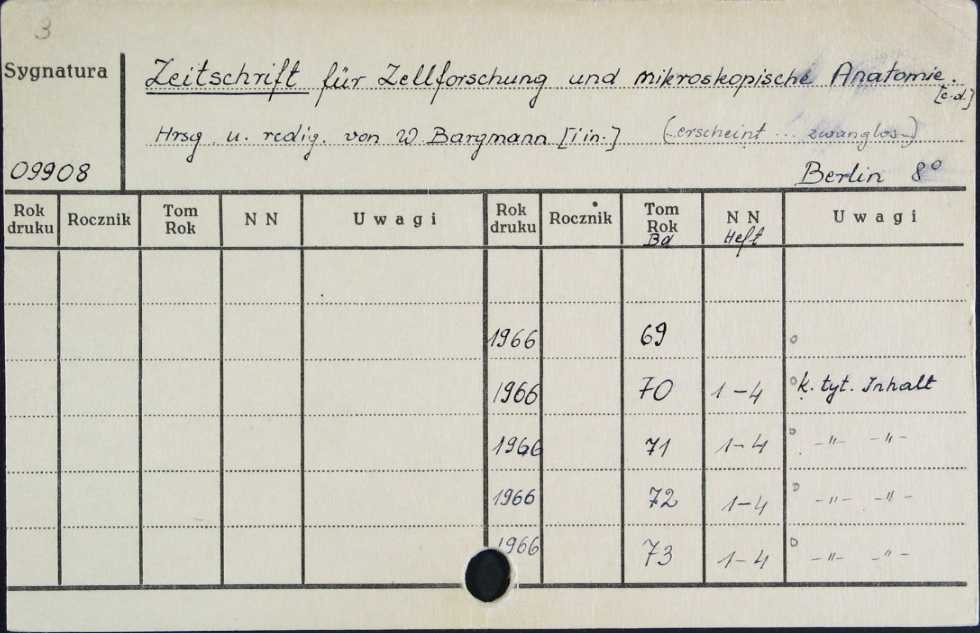 3
Sygnatura
Zeitschrift für Zellforschung und mikroskopische Anatomie.
[c.d.]
Hrsg. u. redig. von W. Bargmann [i in.] (-erscheint ... zwanglos-)
09908
Berlin 8°
Rok druku Rocznik Tom Rok N N Uwagi Rok druku Rocznik Tom Rok Bd N N Heft Uwagi
1966 69 o
1966 70 1-4 o k. tyt. Inhalt
1966 71 1-4 o -"- -"-
1966 72 1-4 o -"- -"-
1966 73 1-4 o -"- -"-